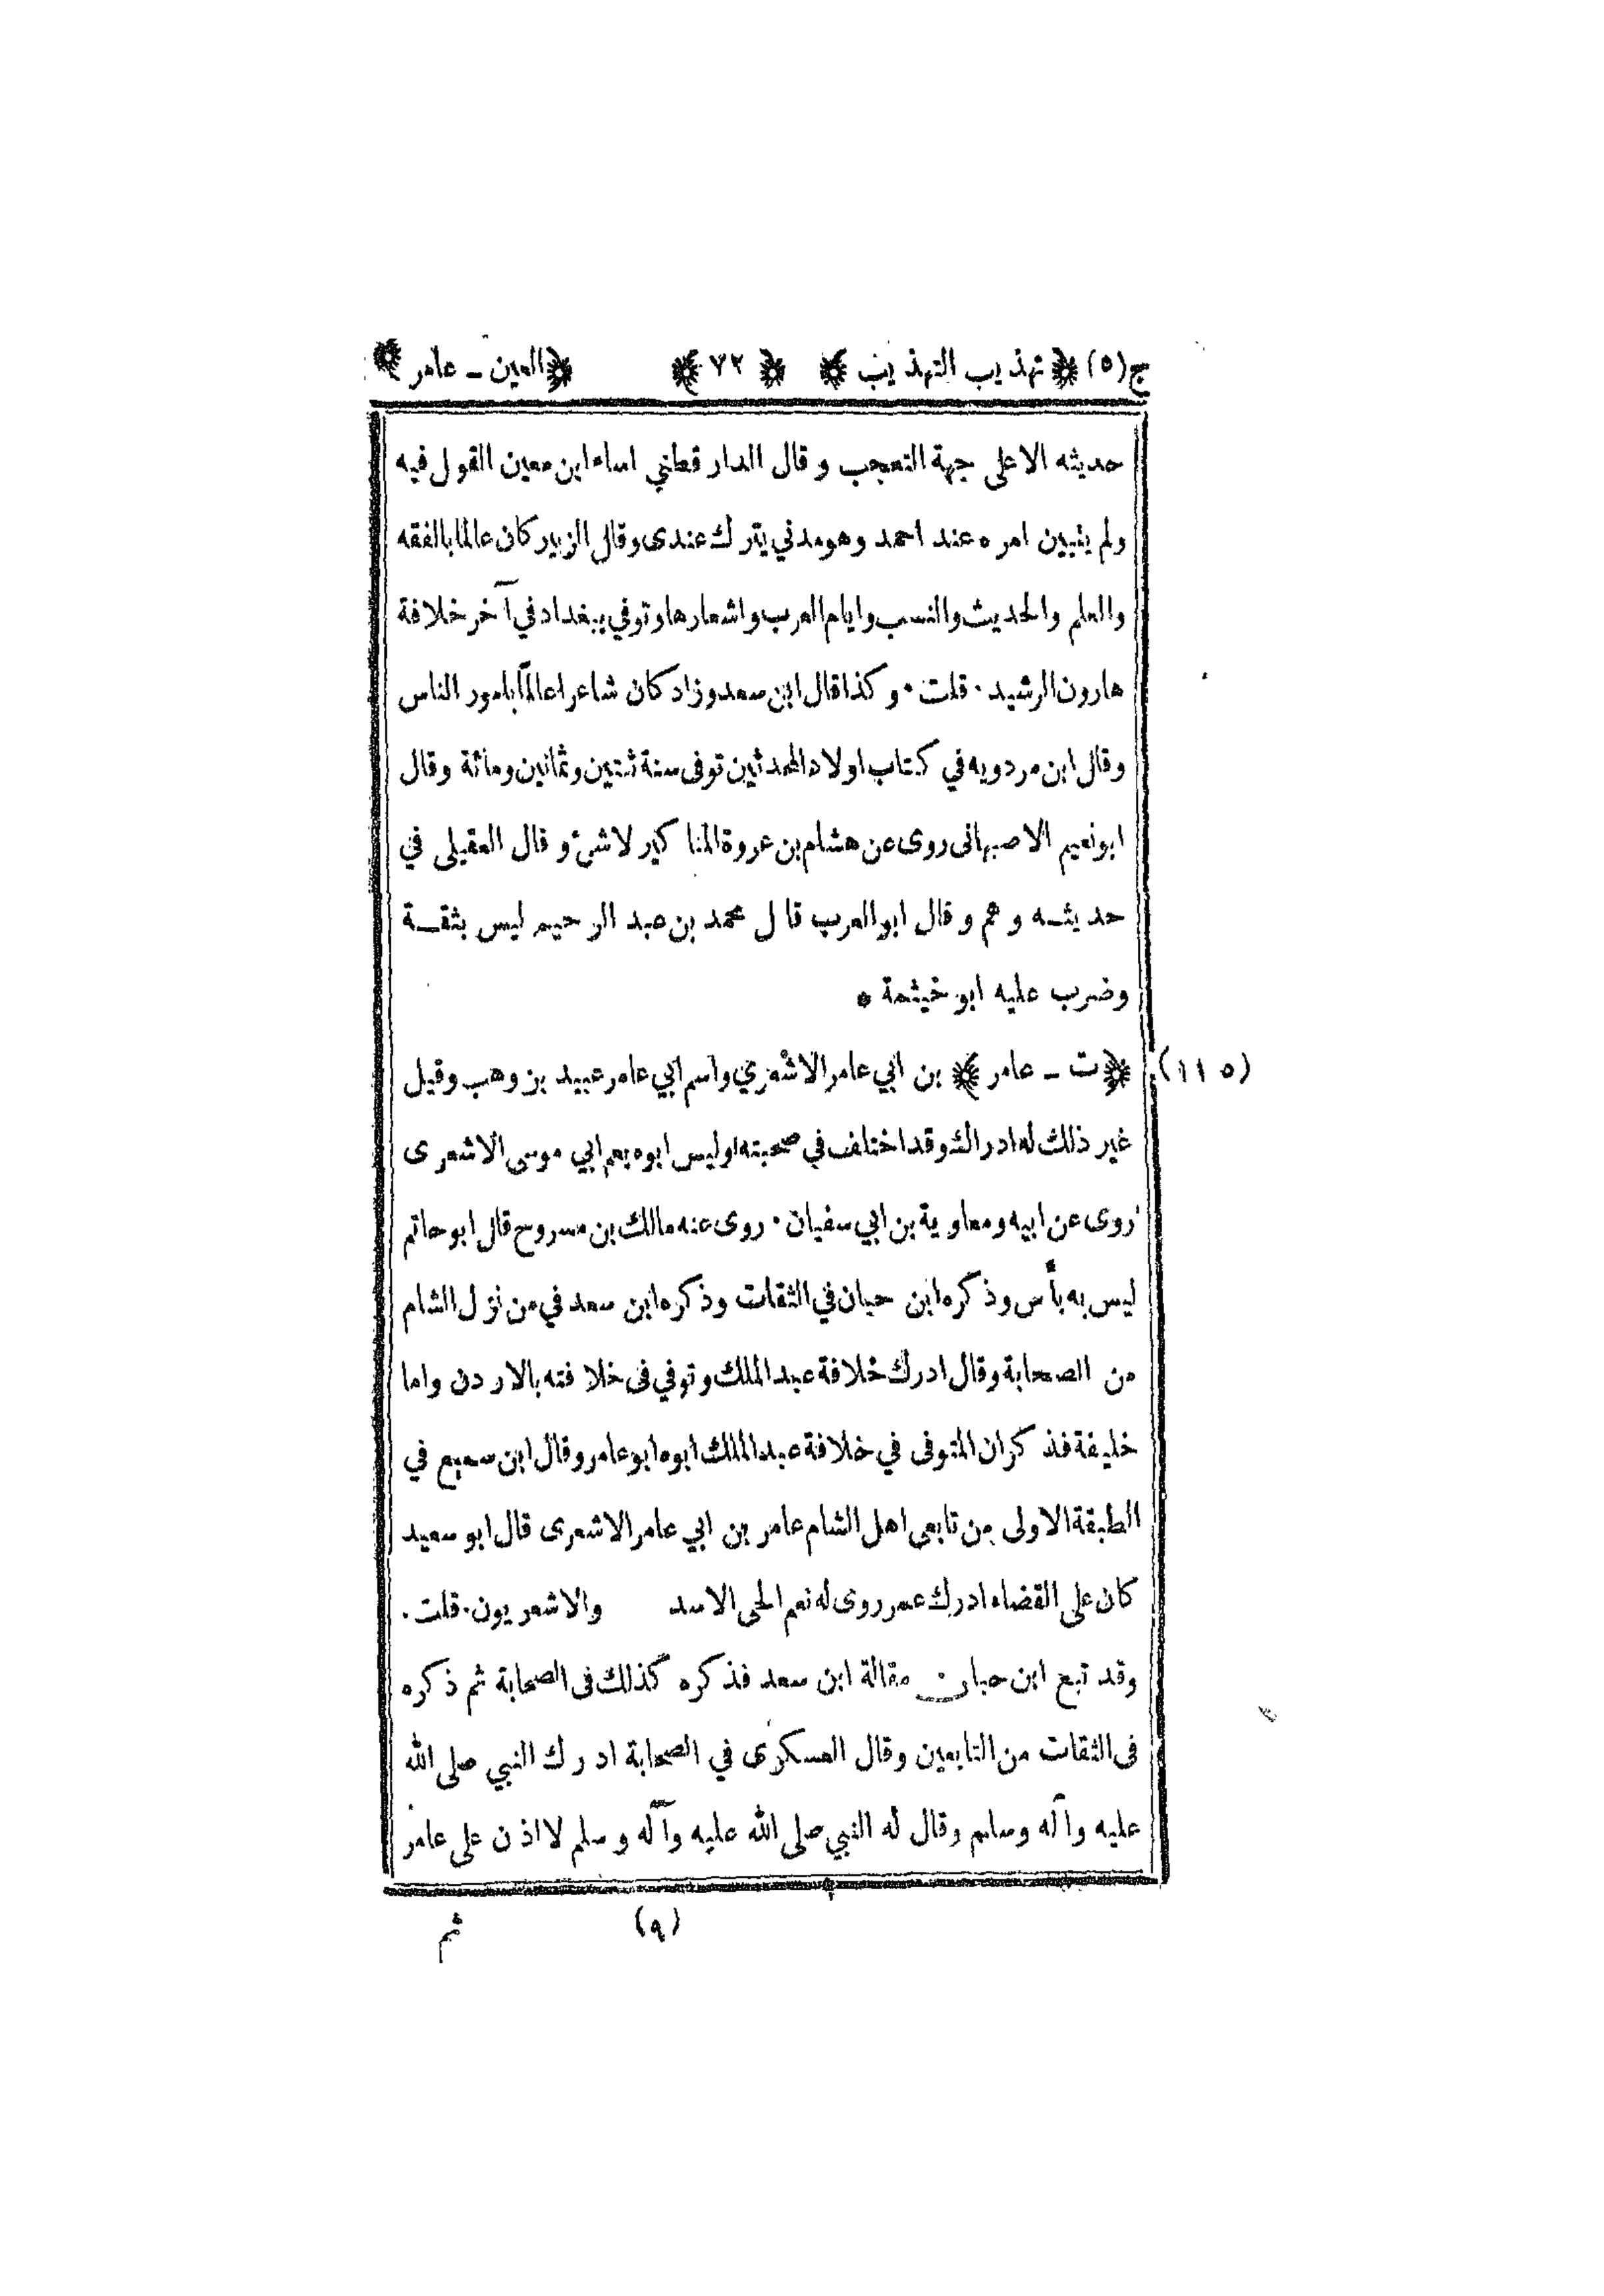 ج(٥) ﴿تهذيب التهذيب﴾ ﴿٧٢﴾ ﴿العين - عامر﴾
حديثه الاعلى جهة التعجب وقال الدارقطني اساء ابن معين القول فيه
ولم يتبين امره عند احمد وهو مدني يترك عندى وقال الزبير كان عالما بالفقه
والعلم والحديث والنسب وايام العرب واشعارها وتوفي ببغداد في آخر خلافة
هارون الرشيد · قلت · وكذا قال ابن سعد وزاد كان شاعرا عالما بامور الناس
وقال ابن مردويه في كتاب اولاد المحدثين توفى سنة ثنتين وثمانين ومائة وقال
ابو نعيم الاصبهانى روى عن هشام بن عروة المناكير لاشئ وقال العقيلى في
حديثـه وهم وقال ابو العرب قال محمد بن عبد الرحيم ليس بثقـة
وضرب عليه ابو خيثمة *
(١١٥) ﴿ت - عامر﴾ بن ابي عامر الاشعري واسم ابي عامر عبيد بن وهب وقيل
غير ذلك له ادراك وقد اختلف في صحبته وليس ابوه بعم ابي موسى الاشعرى
روى عن ابيه ومعاوية بن ابي سفيان · روى عنه مالك بن مسروح قال ابو حاتم
ليس به بأس وذكره ابن حبان في الثقات وذكره ابن سعد في من نزل الشام
من الصحابة وقال ادرك خلافة عبد الملك وتوفي فى خلافته بالاردن واما
خليفة فذكر ان المتوفى في خلافة عبد الملك ابوه ابو عامر وقال ابن سميع في
الطبقة الاولى من تابعى اهل الشام عامر بن ابي عامر الاشعرى قال ابو سعيد
كان على القضاء ادرك عمر روى له نعم الحى الاسد والاشعريون · قلت ·
وقد تبع ابن حبان مقالة ابن سعد فذكره كذلك فى الصحابة ثم ذكره
فى الثقات من التابعين وقال العسكرى في الصحابة ادرك النبي صلى الله
عليه وآله وسلم وقال له النبي صلى الله عليه وآله وسلم لا اذن على عامر
(٩) ثم